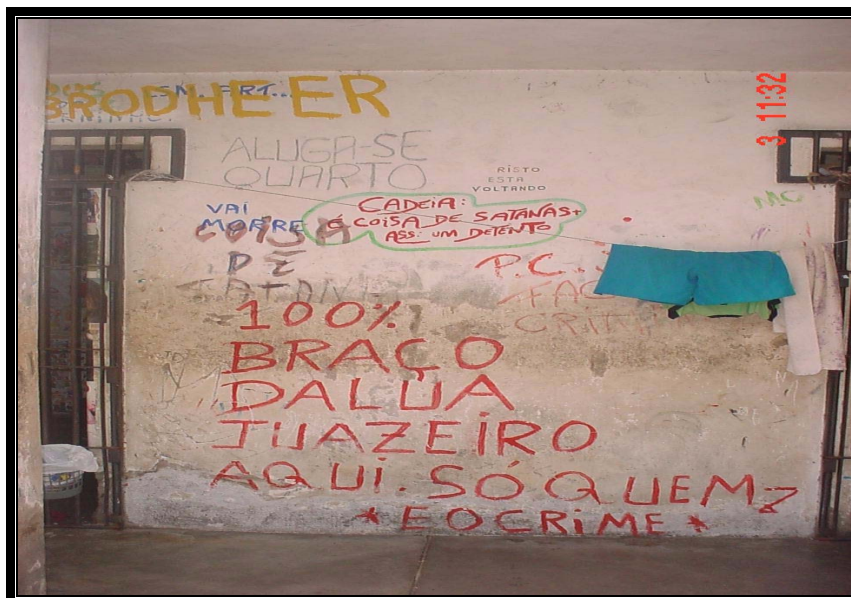 BRODHEER
ALUGA-SE
QUARTO
RISTO
ESTA
VOLTANDO
VAI
MORRE
CADEiA:
É COISA DE SATANAS+
ASS: UM DETENTO
COISA
DE
SATANA
MC
P.C.
FAC
CRIM
100%
BRAÇO
DALUA
JUAZEiRO
AQUi. SÓ QUEM
* EOCRiME *
3 11:32